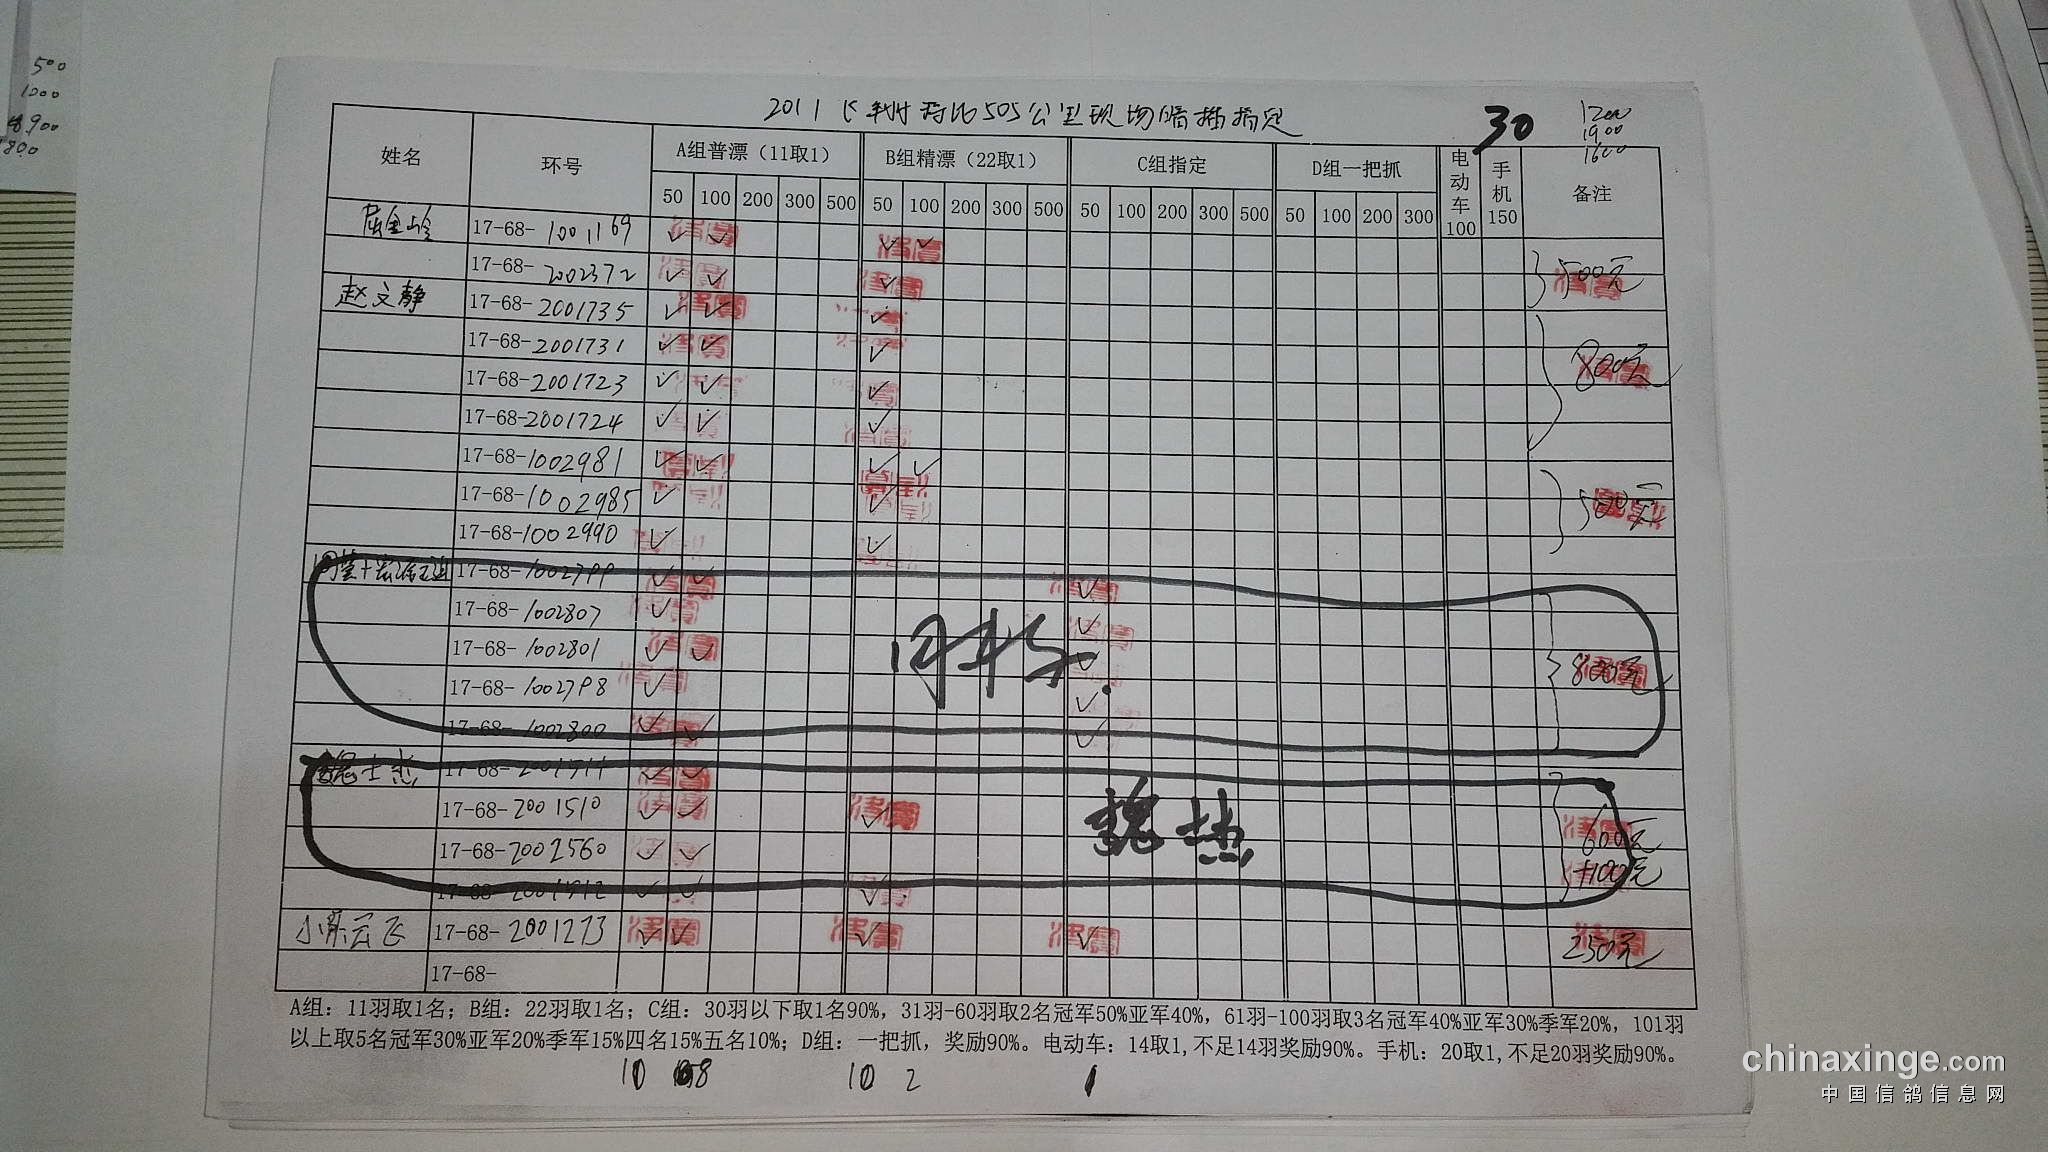 500
1200
8900
1800
505公里现场
30
1200
1900
1600
姓名 环号 A组普漂（11取1） B组精漂（22取1） C组指定 D组一把抓 电动车100 手机150 备注
50 100 200 300 500 50 100 200 300 500 50 100 200 300 500 50 100 200 300
17-68-1001169 ✓ ✓ ✓ ✓
17-68-2002372 ✓ ✓ ✓ 500元
赵文静 17-68-2001735 ✓ ✓ ✓
17-68-2001731 ✓ ✓ ✓ 800元
17-68-2001723 ✓ ✓ ✓
17-68-2001724 ✓ ✓ ✓
17-68-1002981 ✓ ✓ ✓ ✓
17-68-1002985 ✓ ✓ 500元
17-68-1002990 ✓ ✓
17-68-1002799 ✓ ✓ ✓
17-68-1002807 ✓ ✓
17-68-1002801 ✓ ✓ ✓ 800元
17-68-1002798 ✓ ✓
17-68-1002800 ✓ ✓ ✓
17-68-2001511 ✓ ✓
17-68-2001510 ✓ ✓ ✓ 600元
17-68-2002560 ✓ ✓ +100元
17-68-2001512 ✓ ✓ ✓
云飞 17-68-2001273 ✓ ✓ ✓ ✓ 250元
17-68-
A组：11羽取1名；B组：22羽取1名；C组：30羽以下取1名90%，31羽-60羽取2名冠军50%亚军40%，61羽-100羽取3名冠军40%亚军30%季军20%，101羽
以上取5名冠军30%亚军20%季军15%四名15%五名10%；D组：一把抓，奖励90%。电动车：14取1,不足14羽奖励90%。手机：20取1,不足20羽奖励90%。
10 8 10 2 1
chinaxinge.com
中国信鸽信息网